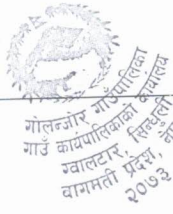 गोलन्जोर गाउँपालिका
गाउँ कार्यपालिकाको कार्यालय
ग्वालटार, सिन्धुली
वागमती प्रदेश, ने
२०७३